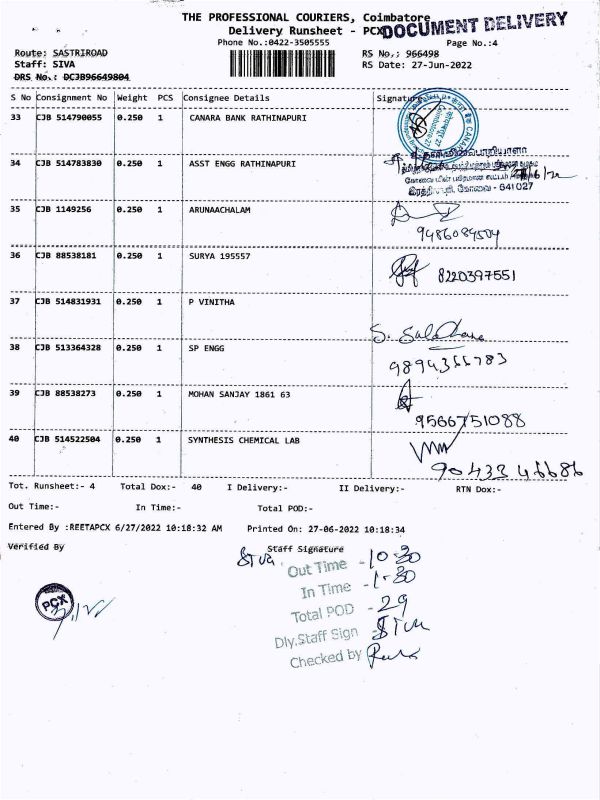 THE PROFESSIONAL COURIERS, Coimbatore
Delivery Runsheet - PCX
DOCUMENT DELIVERY
Phone No.:0422-3505555
Page No.:4
Route: SASTRIROAD
RS No.: 966498
Staff: SIVA
RS Date: 27-Jun-2022
DRS No.: DCJB96649804
S No Consignment No Weight PCS Consignee Details Signature
33 CJB 514790055 0.250 1 CANARA BANK RATHINAPURI
34 CJB 514783830 0.250 1 ASST ENGG RATHINAPURI
கோவை - 641 027
35 CJB 1149256 0.250 1 ARUNAACHALAM
9486084504
36 CJB 88538181 0.250 1 SURYA 195557
8220397551
37 CJB 514831931 0.250 1 P VINITHA
38 CJB 513364328 0.250 1 SP ENGG
9894355783
39 CJB 88538273 0.250 1 MOHAN SANJAY 1861 63
9566751088
40 CJB 514522504 0.250 1 SYNTHESIS CHEMICAL LAB
90432 46686
Tot. Runsheet:- 4 Total Dox:- 40 I Delivery:- II Delivery:- RTN Dox:-
Out Time:- In Time:- Total POD:-
Entered By :REETAPCX 6/27/2022 10:18:32 AM Printed On: 27-06-2022 10:18:34
Verified By Staff Signature
Out Time - 10-30
In Time - 1-30
Total POD - 29
Dly.Staff Sign
Checked by
PCX